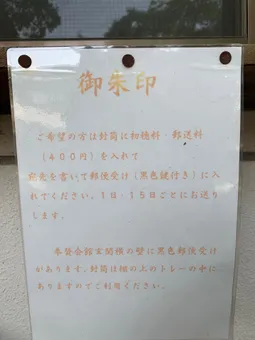 御朱印
ご希望の方は封筒に初穂料・郵送料
(400円)を入れて
宛先を書いて郵便受け(黒色鍵付き)に入
れてください。1日・15日ごとにお送り
します。
奉賛会館玄関横の壁に黒色郵便受け
があります。封筒は棚の上のトレーの中に
ありますのでご利用ください。